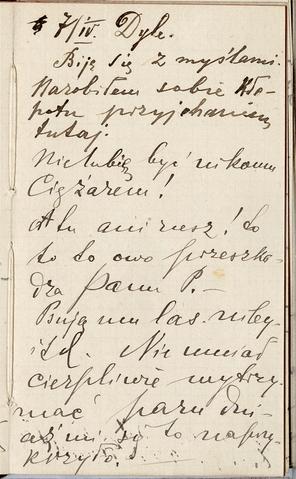 7/IV. Dyle.
Biję się z myślami.
Narobiłem sobie kło-
potu przyjechaniem
tutaj.
Nie lubię być nikomu
Ciężarem!
A tu ani rusz! to
to to owo przeszka-
dza Panu P. —
Bują mu las. niby
itd. Nie umiał
cierpliwie wytrzy-
mać paru dni-
aż mi się to naprzy-
krzyło.